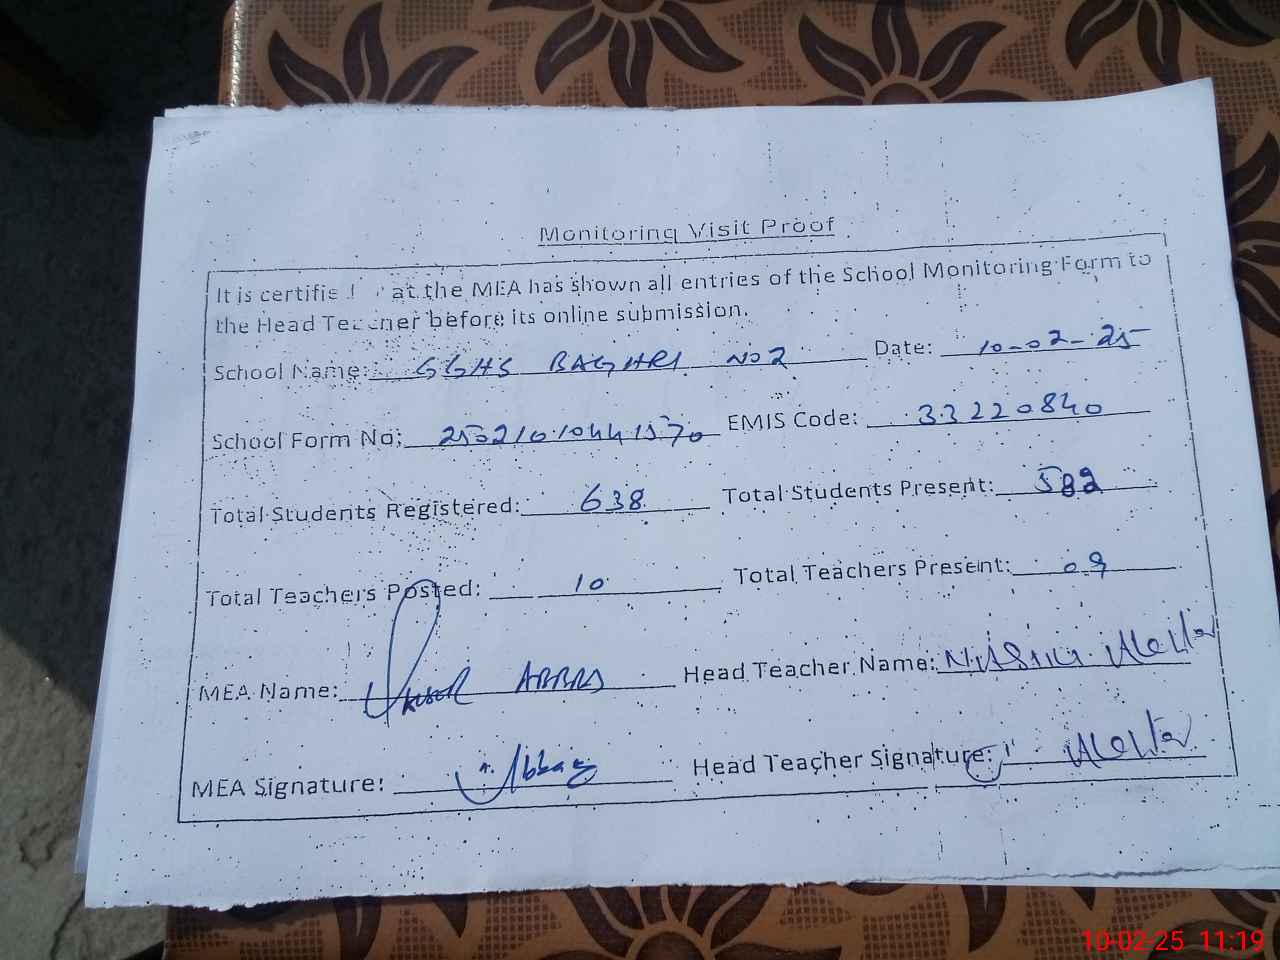 Monitoring Visit Proof
It is certifie at the MEA has shown all entries of the School Monitoring Form to
the Head Teacher before its online submission.
School Name: GGHS BAGHRI NO 2 Date: 10-02-25
School Form No: EMIS Code: 33220840
Total Students Registered: 638 Total Students Present: 582
Total Teachers Posted: 10 Total Teachers Present: 09
MEA Name: ABBAS Head Teacher Name:
MEA Signature: Abbas Head Teacher Signature:
10-02-25 11:19